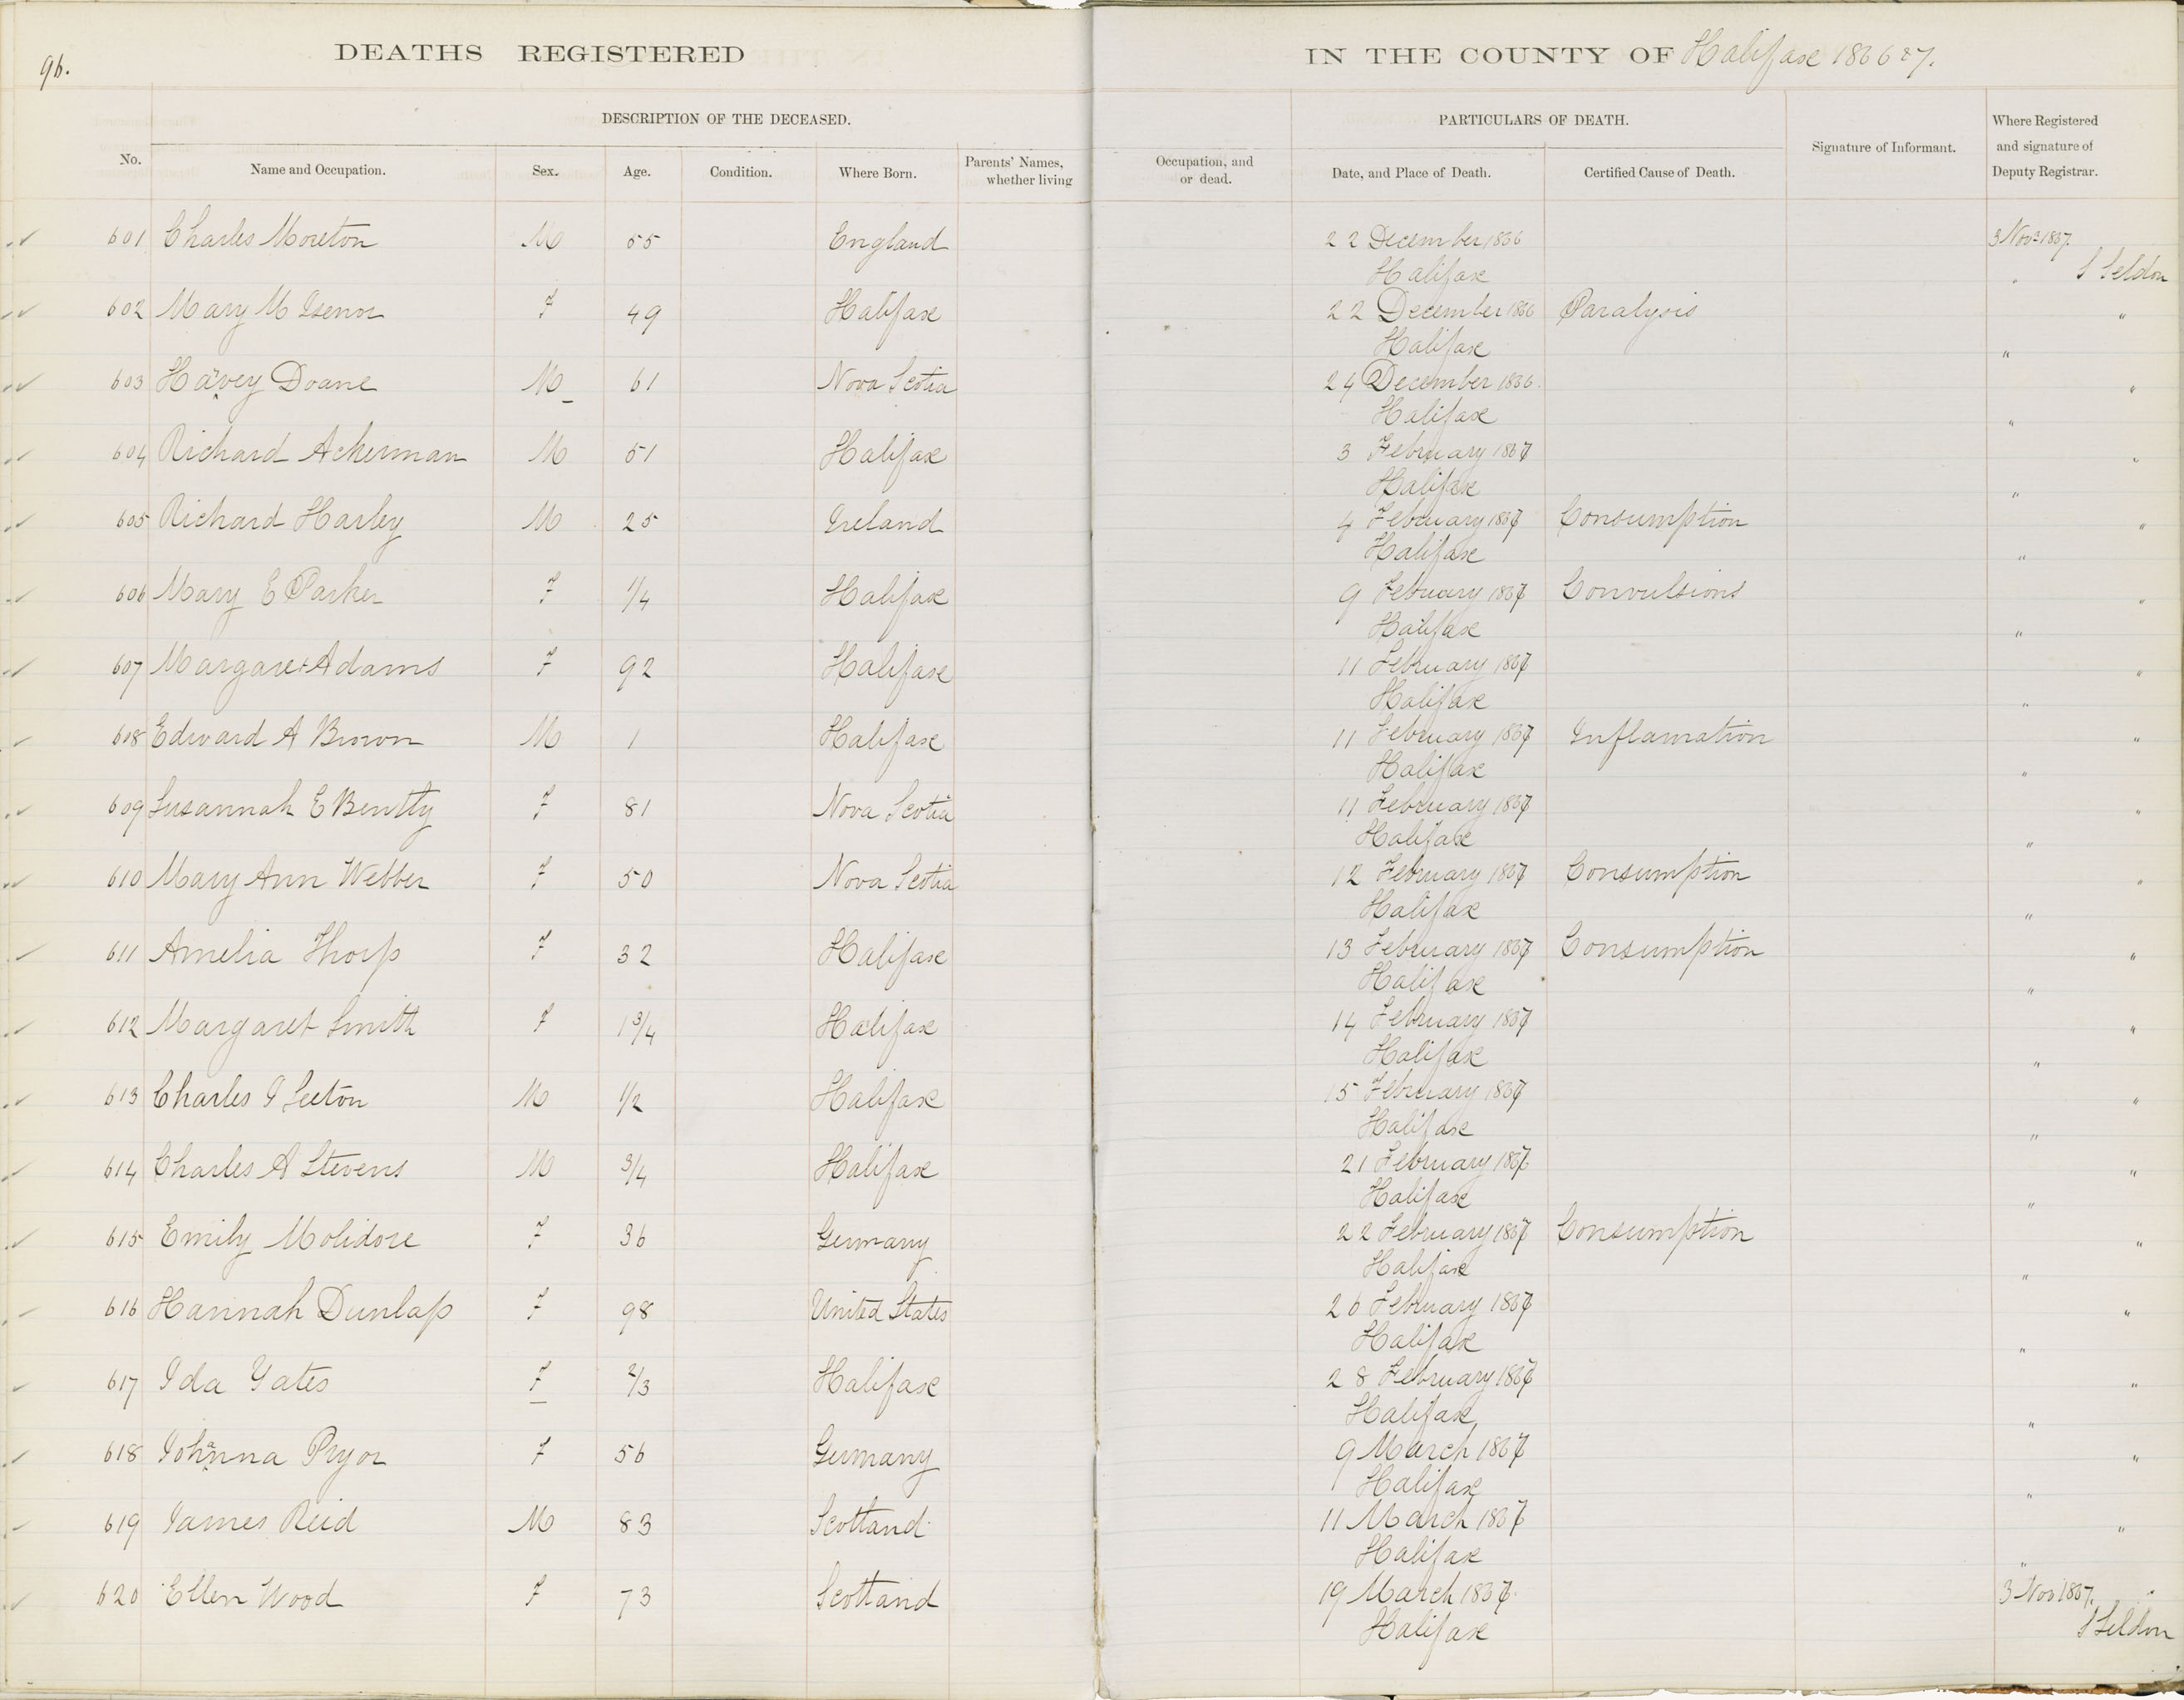 96.
DEATHS REGISTERED IN THE COUNTY OF Halifax 1866 & 7.
DESCRIPTION OF THE DECEASED. PARTICULARS OF DEATH.
No. Name and Occupation. Sex. Age. Condition. Where Born. Parents' Names, whether living Occupation, and or dead. Date, and Place of Death. Certified Cause of Death. Signature of Informant. Where Registered and signature of Deputy Registrar.
601 Charles Moreton M 55 England 22 December 1866 3 Nov 1867.
Halifax " S Seldon
602 Mary M Isenor F 49 Halifax 22 December 1866 Paralysis "
Halifax "
603 Harvey Doane M 61 Nova Scotia 24 December 1866. "
Halifax "
604 Richard Ackerman M 51 Halifax 3 February 1867 "
Halifax "
605 Richard Harley M 25 Ireland 4 February 1867 Consumption "
Halifax "
606 Mary E Parker F 1/4 Halifax 9 February 1867 Convulsions "
Halifax "
607 Margaret Adams F 92 Halifax 11 February 1867 "
Halifax "
608 Edward A Brown M 1 Halifax 11 February 1867 Inflamation "
Halifax "
609 Susannah E Bently F 81 Nova Scotia 11 February 1867 "
Halifax "
610 Mary Ann Webber F 50 Nova Scotia 12 February 1867 Consumption "
Halifax "
611 Amelia Thorp F 32 Halifax 13 February 1867 Consumption "
Halifax "
612 Margaret Smith F 1 3/4 Halifax 14 February 1867 "
Halifax "
613 Charles I Seeton M 1/2 Halifax 15 February 1867 "
Halifax "
614 Charles A Stevens M 3/4 Halifax 21 February 1867 "
Halifax "
615 Emily Molidore F 36 Germany 22 February 1867 Consumption "
Halifax "
616 Hannah Dunlap F 98 United States 26 February 1867 "
Halifax "
617 Ida Yates F 2/3 Halifax 28 February 1867 "
Halifax "
618 Johanna Pryor F 56 Germany 9 March 1867 "
Halifax "
619 James Reid M 83 Scotland 11 March 1867 "
Halifax "
620 Ellen Wood F 73 Scotland 19 March 1867. 3 Nov 1867. "
Halifax S Seldon